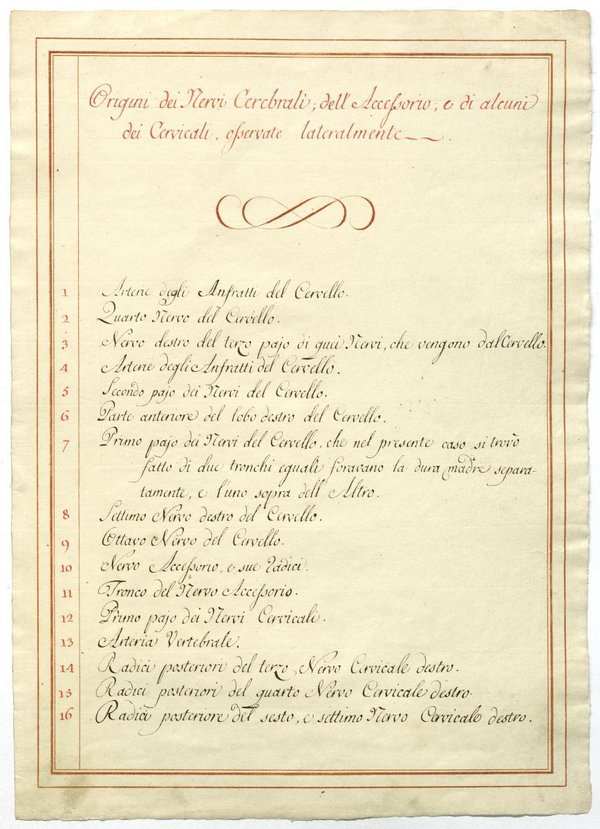 Origini dei Nervi Cerebrali, dell'Accessorio, e di alcuni
dei Cervicali, osservate lateralmente
1 Arterie degli Anfratti del Cervello.
2 Quarto Nervo del Cervello.
3 Nervo destro del terzo pajo di quei Nervi, che vengono dal Cervello
4 Arterie degli Anfratti del Cervello.
5 Secondo pajo dei Nervi del Cervello.
6 Parte anteriore del lobo destro del Cervello.
7 Primo pajo dei Nervi del Cervello, che nel presente caso si trovò
fatto di due tronchi eguali foravano la dura madre separa-
tamente, e l'uno sopra dell'Altro.
8 Settimo Nervo destro del Cervello.
9 Ottavo Nervo del Cervello.
10 Nervo Accessorio, e sue Radici.
11 Tronco del Nervo Accessorio.
12 Primo pajo dei Nervi Cervicali.
13 Arteria Vertebrale.
14 Radici posteriori del terzo, Nervo Cervicale destro.
15 Radici posteriori del quarto Nervo Cervicale destro.
16 Radici posteriore del sesto, e settimo Nervo Cervicale destro.